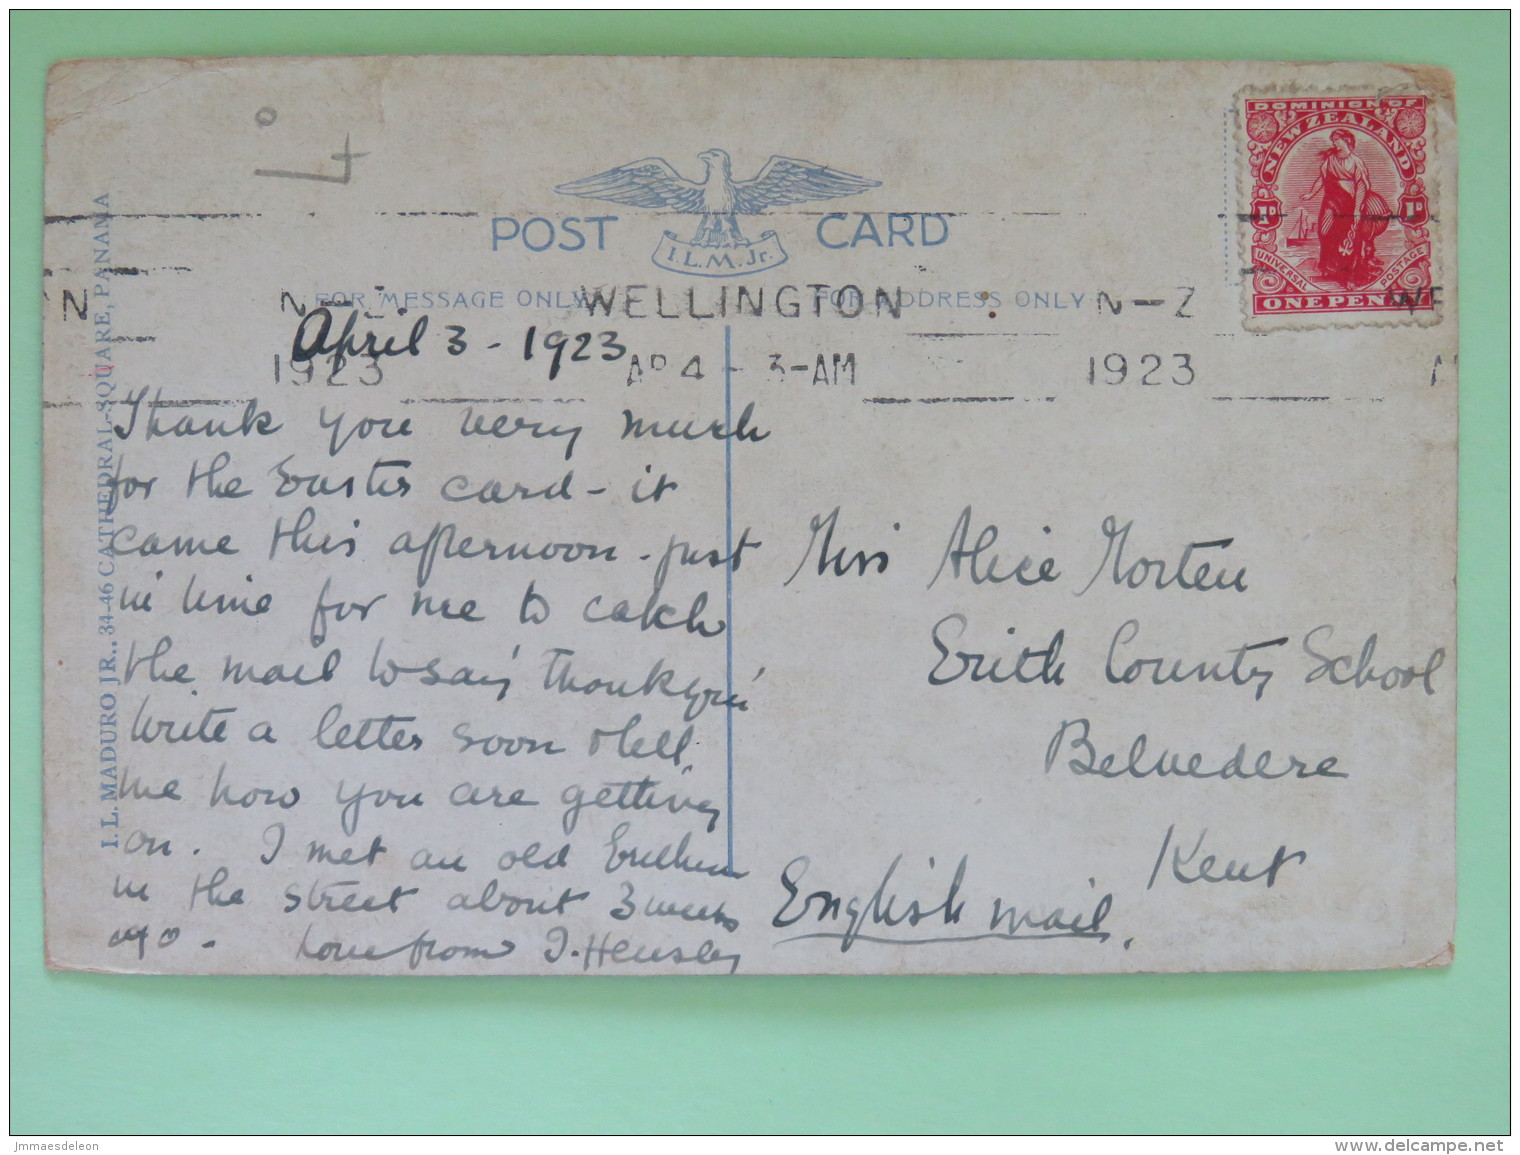 4°
POST CARD
I.L.M. Jr.
FOR MESSAGE ONLY
FOR ADDRESS ONLY
I. L. MADURO JR., 34-46 CATHEDRAL-SQUARE, PANAMA
DOMINION OF
NEW ZEALAND
1D 1D
UNIVERSAL POSTAGE
ONE PENNY
N N-Z WELLINGTON N-Z WE
1923 AP 4 - 3-AM 1923
April 3 - 1923
Thank you very much
for the Easter card - it
came this afternoon - just
in time for me to catch
the mail to say 'thank you'
Write a letter soon & tell
me how you are getting
on. I met an old Erithian
in the street about 3 weeks
ago - Love from J. Hensley
Miss Alice Morten
Erith County School
Belvedere
Kent
English mail.
jmmaesdeleon
www.delcampe.net